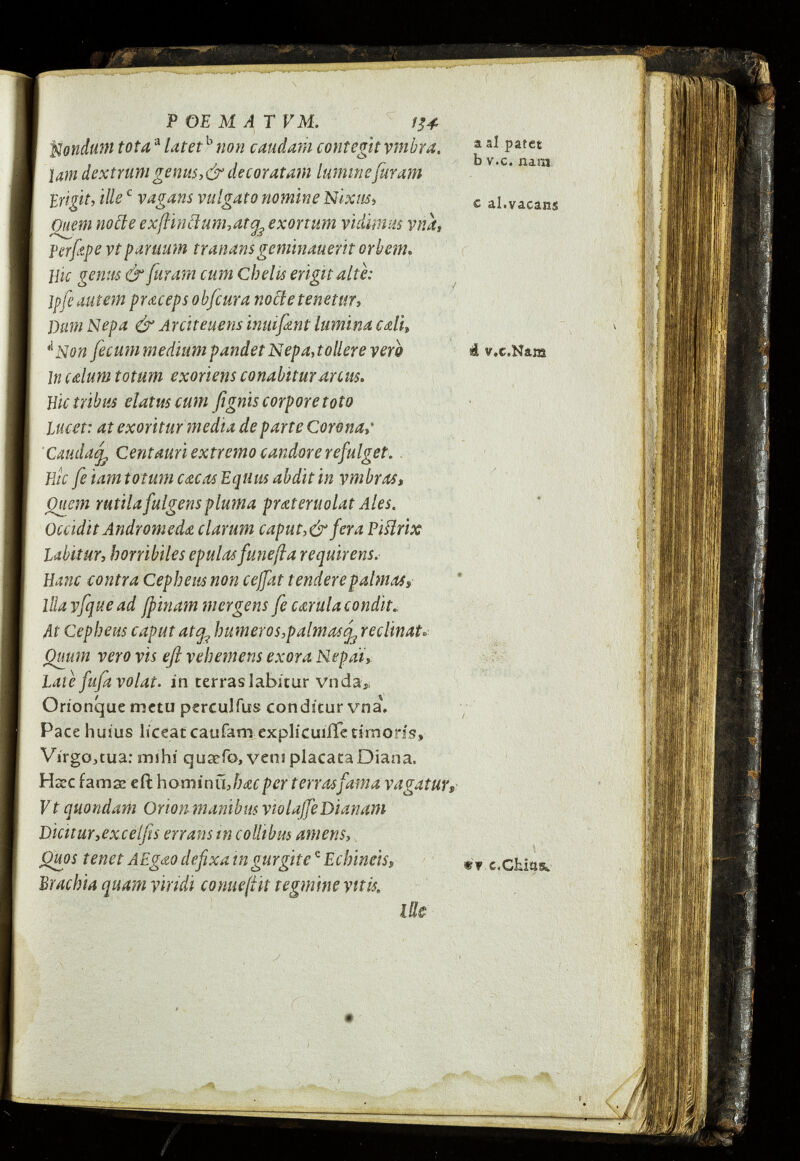 POEMATVM. 134
Nondum tota ᵃ latet ᵇ non caudam contegit vmbra.
Iam dextrum genus,& decoratam lumine suram
Erigit, ille ᶜ vagans vulgato nomine Nixus,
Quem nocte exstinctum,atq; exortum vidimus vnà,
Persæpe vt paruum tranans geminauerit orbem.
Hic genus & suram cum Chelis erigit altè:
Ipse autem præceps obscura nocte tenetur,
Dum Nepa & Arcitenens inuisant lumina cæli,
ᵈ Non secum medium pandet Nepa,tollere verò
In cælum totum exoriens conabitur arcus.
Hic tribus elatus cum signis corpore toto
Lucet: at exoritur media de parte Corona,
Caudaq; Centauri extremo candore refulget.
Hic se iam totum cæcas Equus abdit in vmbras,
Quem rutila fulgens pluma præteruolat Ales.
Occidit Andromedæ clarum caput,& fera Pistrix
Labitur, horribiles epulas funesta requirens.
Hanc contra Cepheus non cessat tendere palmas,
Illa vsque ad spinam mergens se cærula condit.
At Cepheus caput atq; humeros,palmasq; reclinat.
Quum vero vis est vehemens exora Nepai,
Latè fusa volat. in terras labitur vnda,
Orionque metu perculsus conditur vnà.
Pace huius liceat causam explicuisse timoris,
Virgo,tua: mihi quæso, veni placata Diana.
Hæc famæ est hominū,hæc per terras fama vagatur,
Vt quondam Orion manibus violasse Dianam
Dicitur,excelsis errans in collibus amens,
Quos tenet AEgæo defixa in gurgite ᵉ Echineis,
Brachia quam viridi conuestit tegmine vitis.
Ille
a al patet
b v.c. nam
c al.vacans
d v.c.Nam
e v c.Chius.